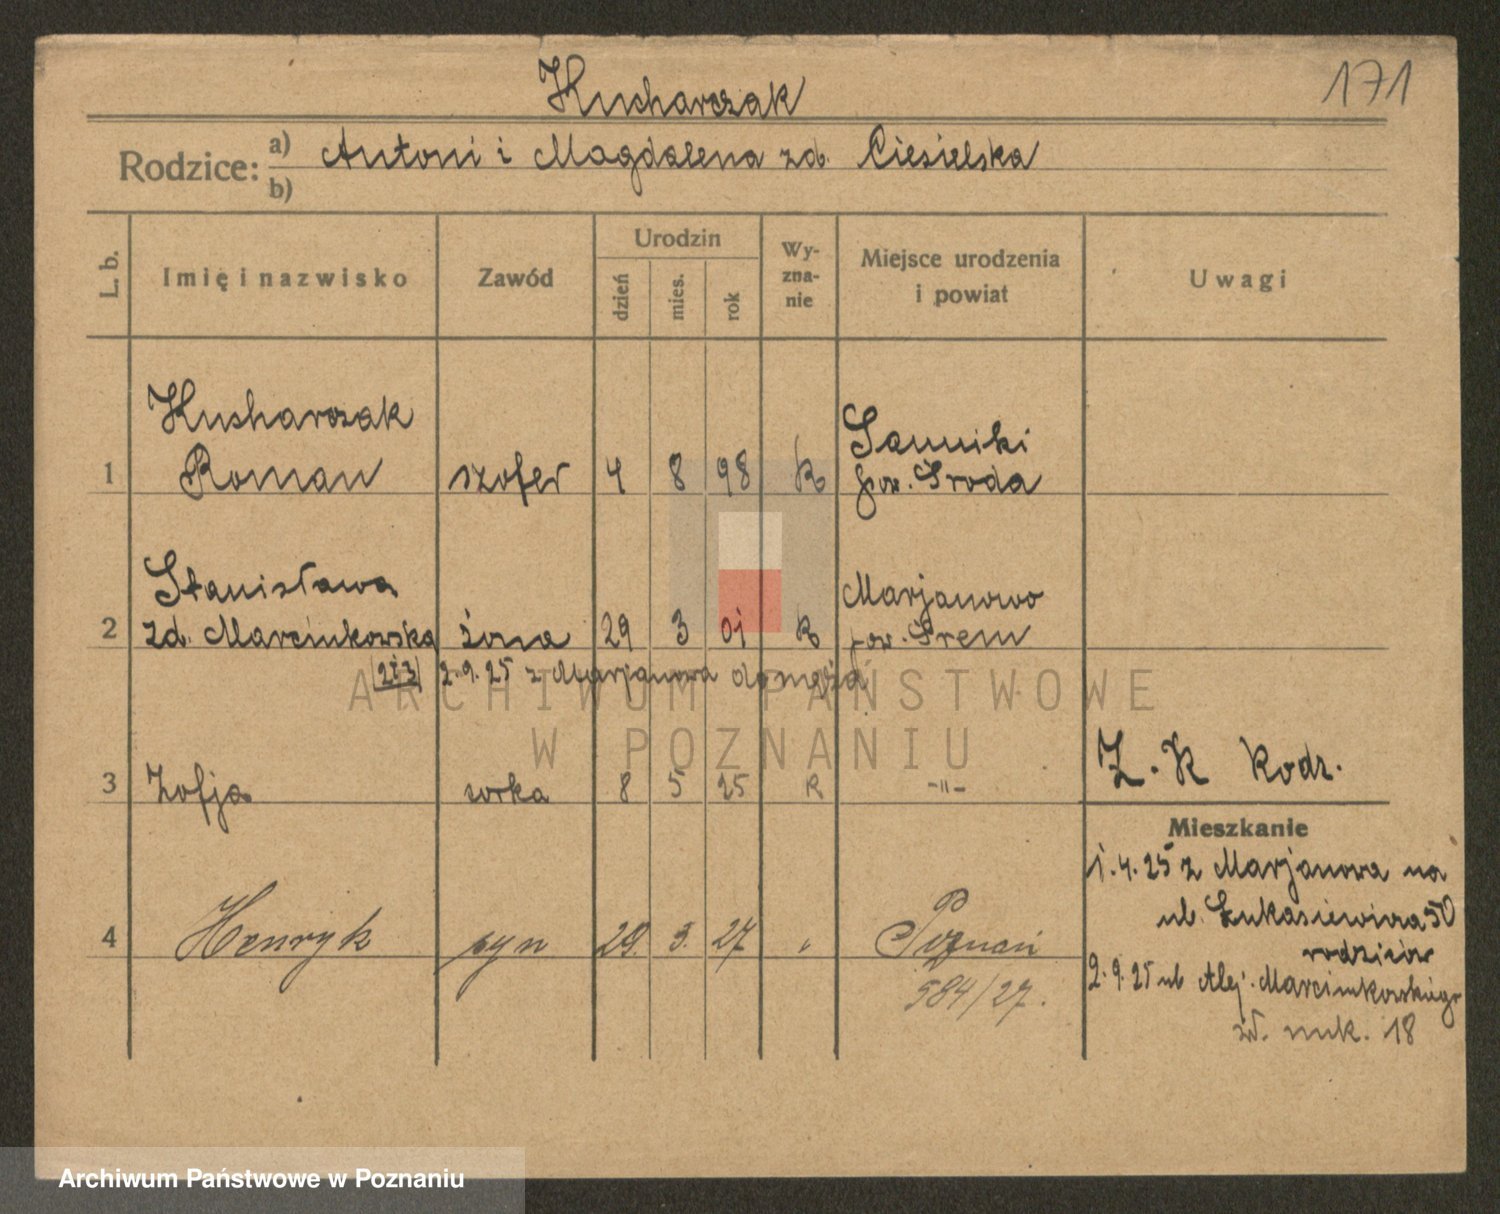 Kucharczak
171
Rodzice: a) Antoni i Magdalena zd. Ciesielska
b)
L. b.
Imię i nazwisko
Zawód
Urodzin
dzień
mies.
rok
Wy-
zna-
nie
Miejsce urodzenia
i powiat
Uwagi
Kucharczak
1 Roman szofer 4 8 98 k Sanniki
pow. Środa
Stanisława
2 zd. Marcinkowska żona 29 3 01 k Marjanowo
pow. Śrem
(2i3) 2.9.25 z Marjanowa do męża
3 Zofja córka 8 5 25 k -"-
Z. K Rodz.
4 Henryk syn 29. 3. 27 " Poznań
584/27.
Mieszkanie
1.4.25 z Marjanowa na
ul. Łukasiewicza 50
2.9.25 ul Alej. Marcinkowskiego
18
ARCHIWUM PAŃSTWOWE
W POZNANIU
Archiwum Państwowe w Poznaniu